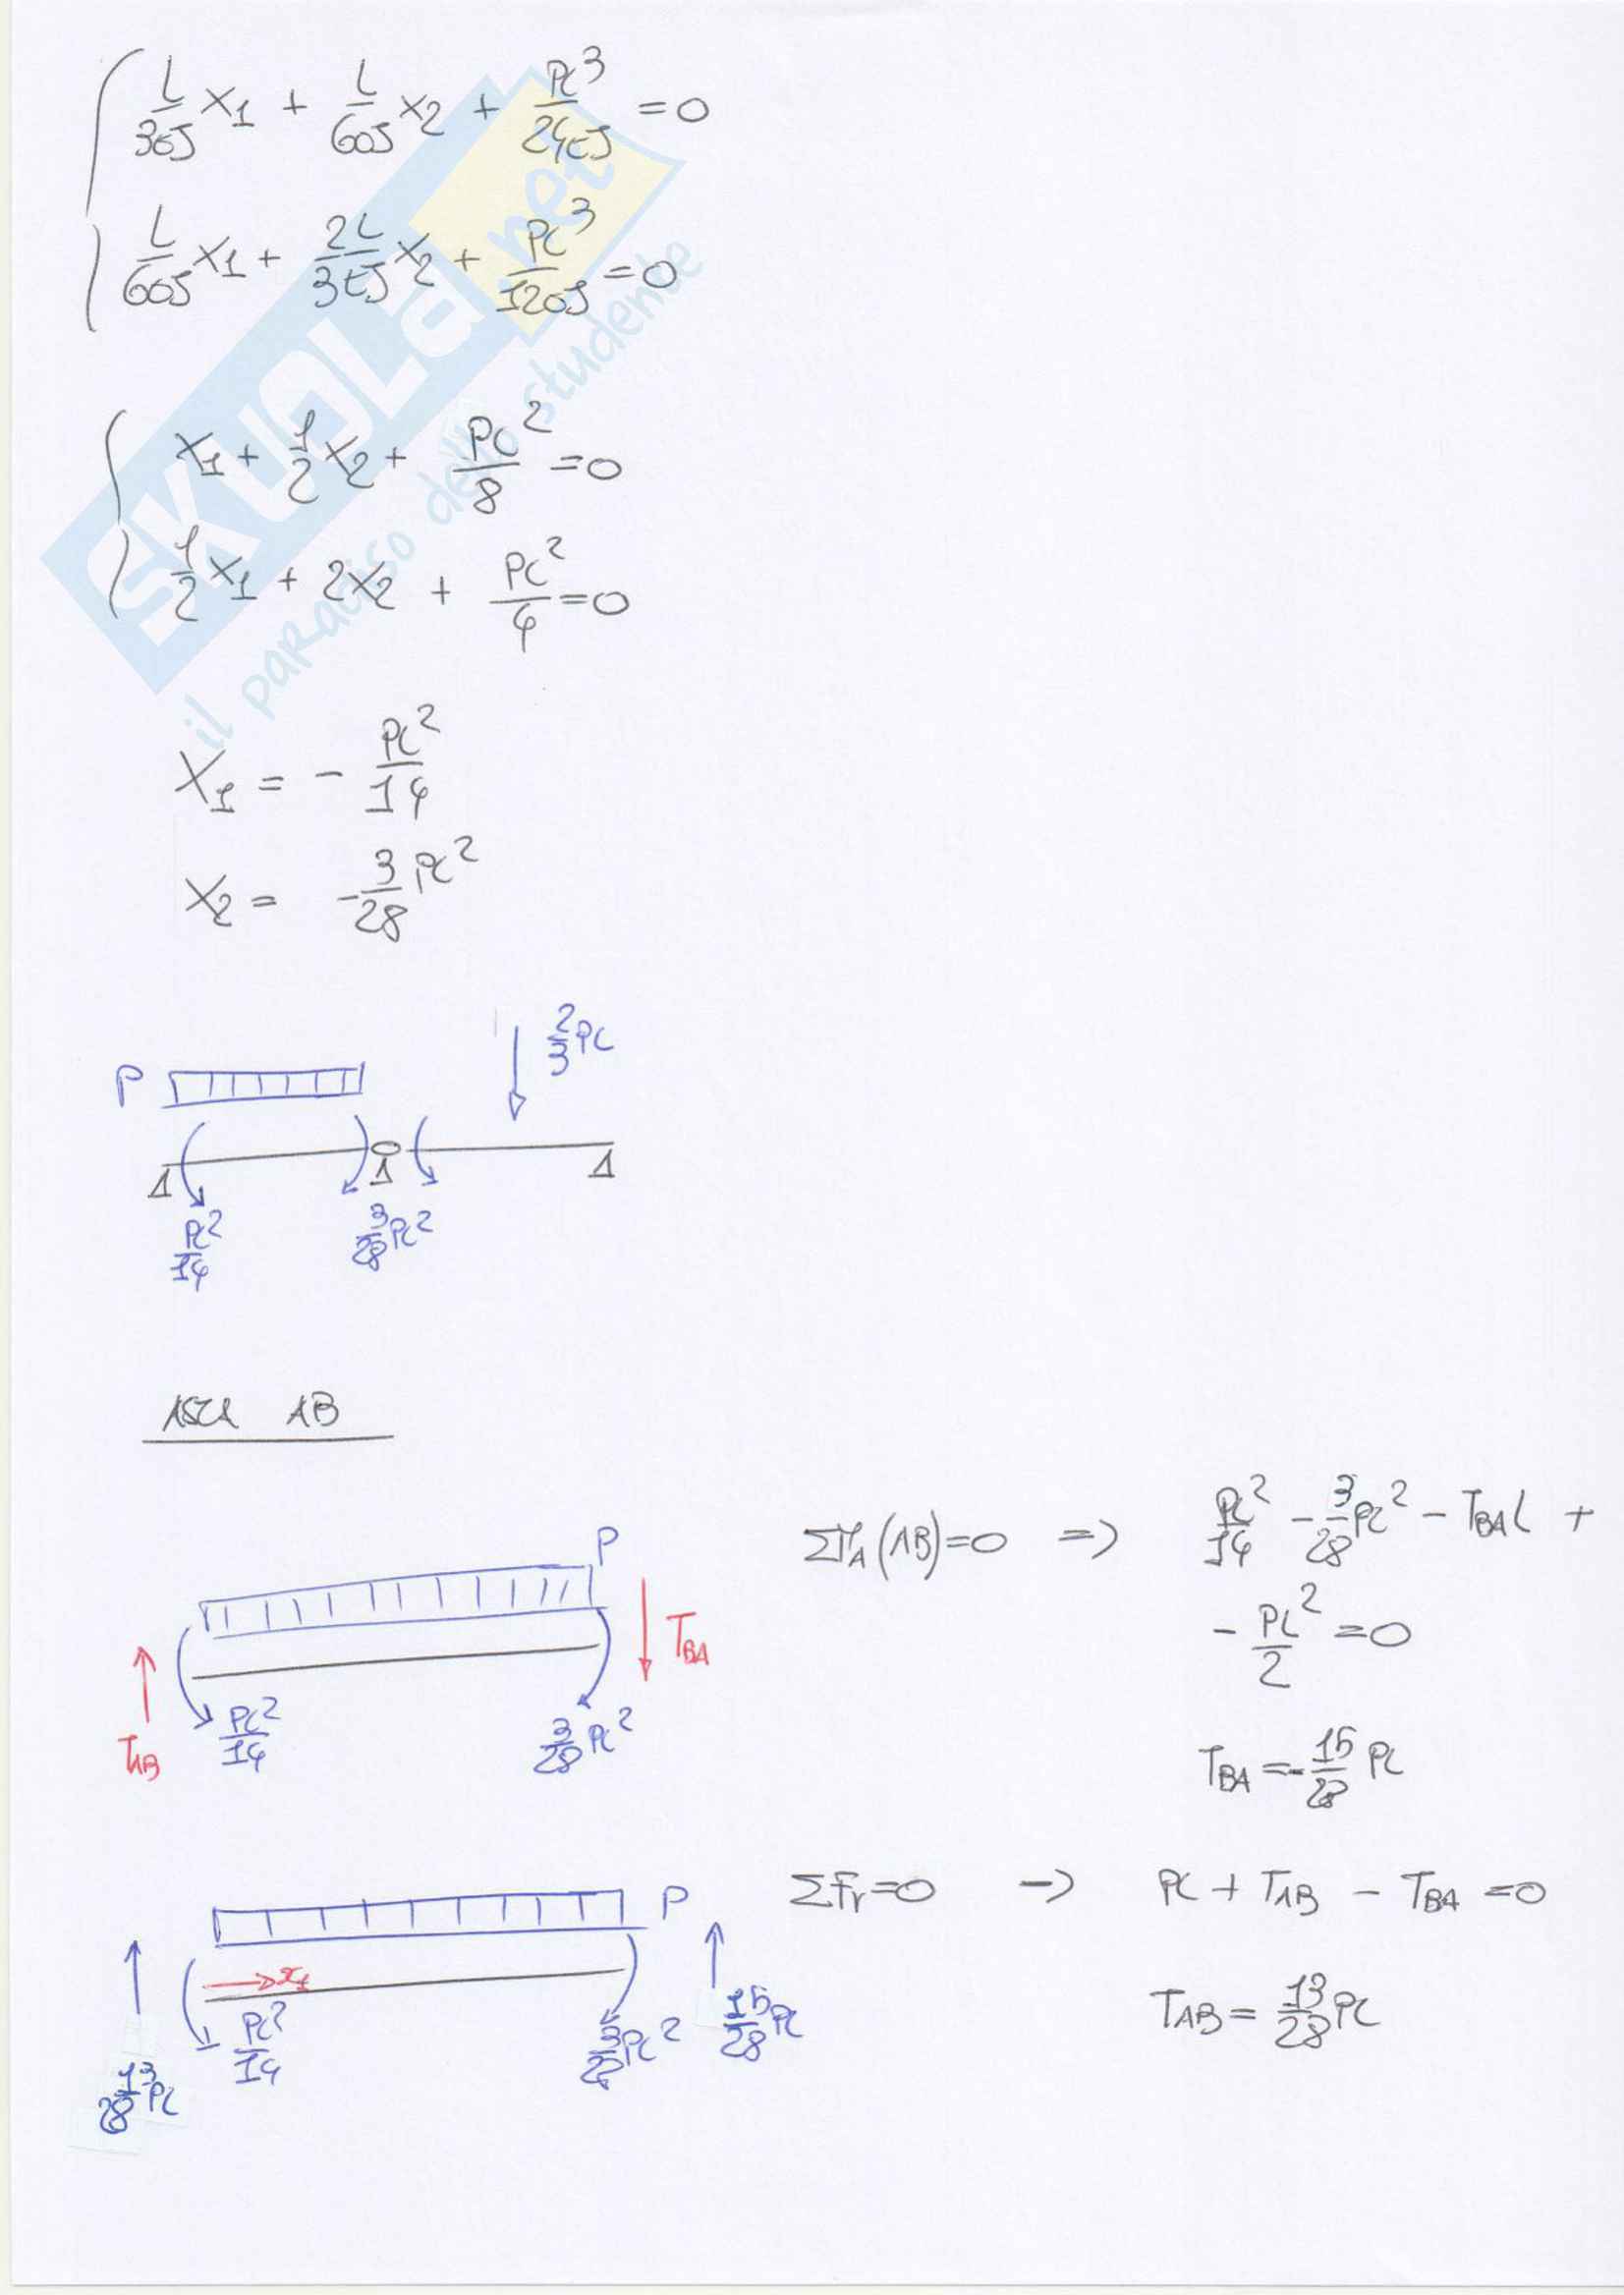 L/3EJ X1 + L/6EJ X2 + PL^3/24EJ = 0
L/6EJ X1 + 2L/3EJ X2 + PL^3/12EJ = 0
X1 + 1/2 X2 + PL^2/8 = 0
1/2 X1 + 2X2 + PL^2/4 = 0
X1 = - PL^2/14
X2 = -3/28 PL^2
2/3 PL
P
PL^2/14 3/28 PL^2
ASTA AB
P
TBA
TAB PL^2/14 3/28 PL^2
ΣMA (AB)=0 => PL^2/14 - 3/28 PL^2 - TBA L +
- PL^2/2 = 0
TBA = -15/28 PL
P
x1
13/28 PL PL^2/14 3/28 PL^2 15/28 PL
ΣFr=0 -> PL + TAB - TBA = 0
TAB = 13/28 PL
SKUOLA.net
il paradiso dello studente